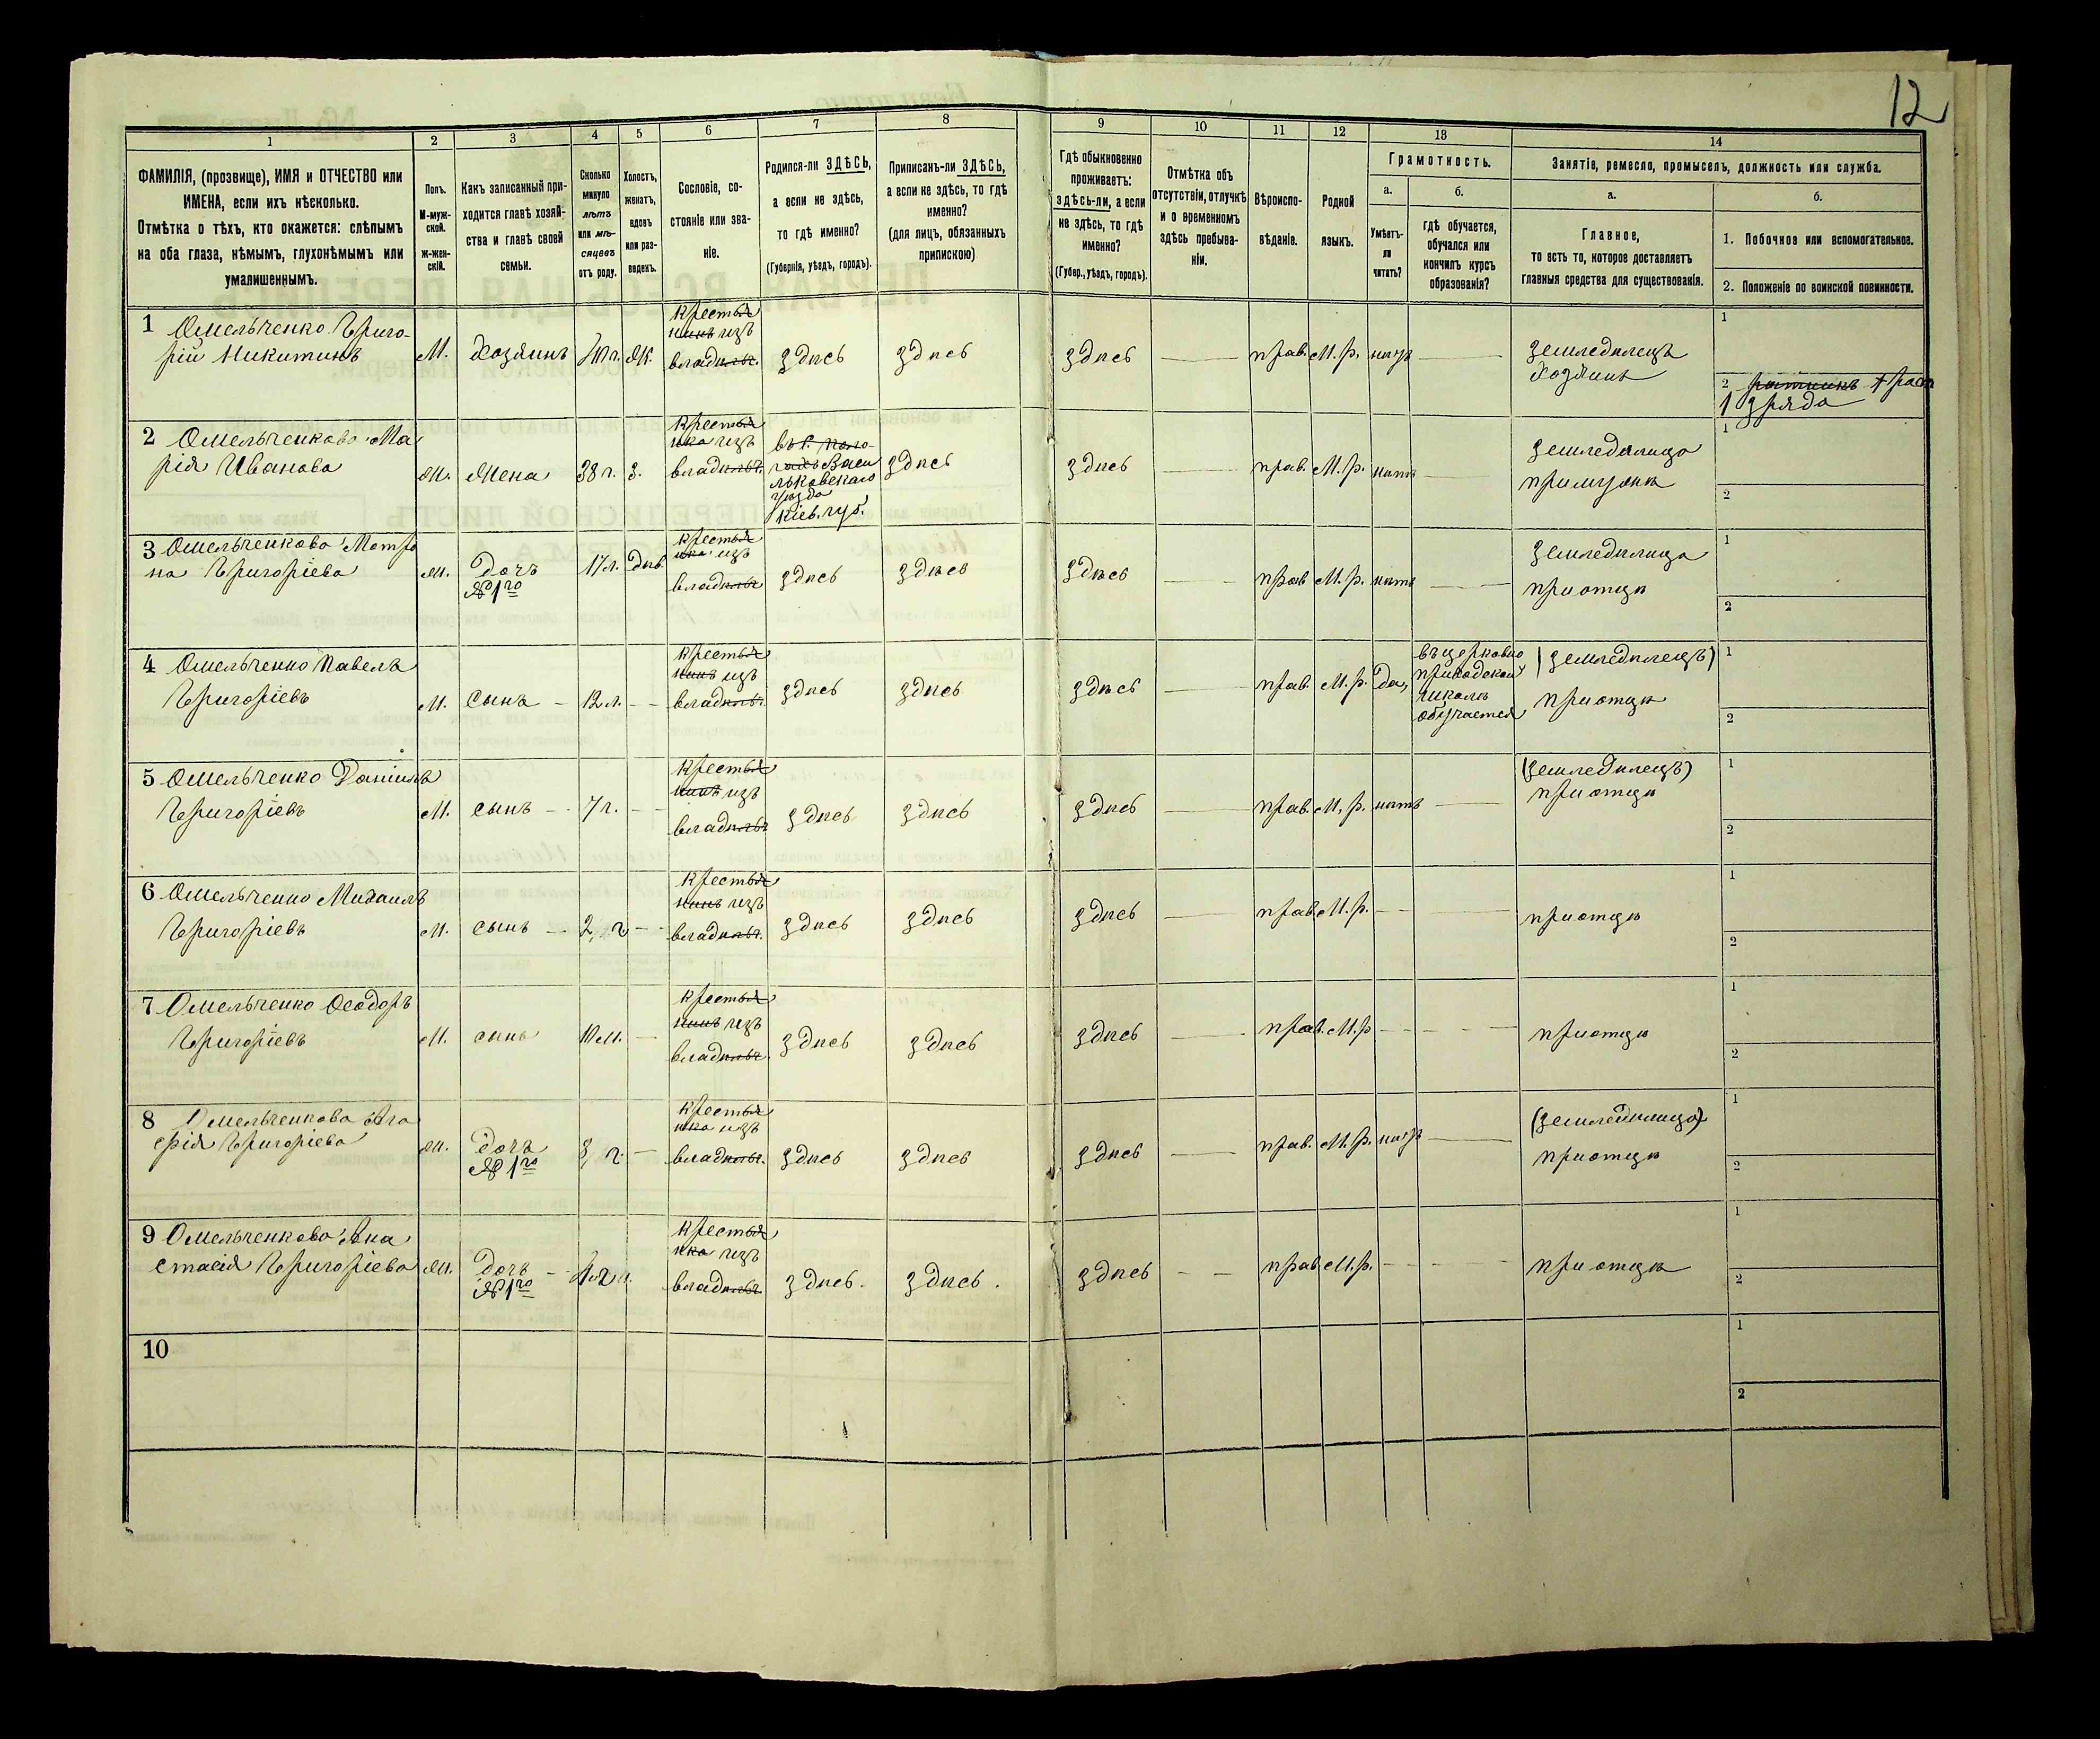 12
1
2
3
4
5
6
7
8
9
10
11
12
13
14
ФАМИЛІЯ, (прозвище), ИМЯ и ОТЧЕСТВО или
ИМЕНА, если ихъ нѣсколько.
Отмѣтка о тѣхъ, кто окажется: слѣпымъ
на оба глаза, нѣмымъ, глухонѣмымъ или
умалишеннымъ.
Полъ.
М-муж-
ской.
Ж-жен-
скій.
Какъ записанный при-
ходится главѣ хозяй-
ства и главѣ своей
семьи.
Сколько
минуло
лѣтъ
или мѣ-
сяцевъ
отъ роду.
Холостъ,
женатъ,
вдовъ
или раз-
веденъ.
Сословіе, со-
стояніе или зва-
ніе.
Родился-ли ЗДѢСЬ,
а если не здѣсь,
то гдѣ именно?
(Губернія, уѣздъ, городъ).
Приписанъ-ли ЗДѢСЬ,
а если не здѣсь, то гдѣ
именно?
(для лицъ, обязанныхъ
припискою)
Гдѣ обыкновенно
проживаетъ:
здѣсь-ли, а если
не здѣсь, то гдѣ
именно?
(Губер., уѣздъ, городъ).
Отмѣтка объ
отсутствіи, отлучкѣ
и о временномъ
здѣсь пребыва-
ніи.
Вѣроиспо-
вѣданіе.
Родной
языкъ.
Грамотность.
а.
Умѣетъ-
ли
читать?
б.
Гдѣ обучается,
обучался или
кончилъ курсъ
образованія?
Занятіе, ремесло, промыселъ, должность или служба.
а.
Главное,
то есть то, которое доставляетъ
главныя средства для существованія.
б.
1. Побочное или вспомогательное.
2. Положеніе по воинской повинности.
1 Омельченко Григо-
рій Никитинъ
М. Хозяинъ Ж.
крестья
нинъ изъ
владѣльч.
здѣсь здѣсь здѣсь прав. М. р. нѣтъ
земледѣлецъ
Хозяинъ
1
2 ратникъ
1 зряда
2 Омельченкова Ма
рія Иванова
Ж. Жена 38 г. З.
крестья
нка изъ
владѣльч.
Васи
льковскаго
уѣзда
Кіев. губ.
здѣсь здѣсь прав. М. р. нѣтъ
земледѣлица
примужѣ
1
2
3 Омельченкова Матро
на Григоріева
Ж. Дочь
№ 1го
17 л. Дѣв.
крестья
нка изъ
владѣльч
здѣсь здѣсь здѣсь прав М. р. нѣтъ
земледѣлица
приотцѣ
1
2
4 Омельченко Павелъ
Григоріевъ
М. Сынъ 12 л.
крестья
нинъ изъ
владѣльч.
здѣсь здѣсь здѣсь прав. М. р. Да,
въ церковно
приходской
школѣ
обучается
(земледѣлецъ)
приотцѣ
1
2
5 Омельченко Даніилъ
Григоріевъ
М. сынъ 7 г.
крестья
нинъ изъ
владѣльч
здѣсь здѣсь здѣсь прав. М. р. нѣтъ
(земледѣлецъ)
приотцѣ
1
2
6 Омельченко Михаилъ
Григоріевъ
М. сынъ 2, г
крестья
нинъ изъ
владѣльч.
здѣсь здѣсь здѣсь прав. М. р.
приотцѣ
1
2
7 Омельченко Ѳеодоръ
Григоріевъ
М. сынъ
крестья
нинъ изъ
владѣльч.
здѣсь здѣсь здѣсь прав. М. р
приотцѣ
1
2
8 Омельченкова Ага
фія Григоріева
Ж. Дочь
№ 1го
крестья
нка изъ
владѣльч.
здѣсь здѣсь здѣсь прав. М. р. нѣтъ
(земледѣлица)
приотцѣ
1
2
9 Омельченкова Ана
стасія Григоріева
Ж. Дочь
№ 1го
крестья
нка изъ
владѣльч.
здѣсь. здѣсь. здѣсь прав. М. р.
приотцѣ
1
2
10
1
2